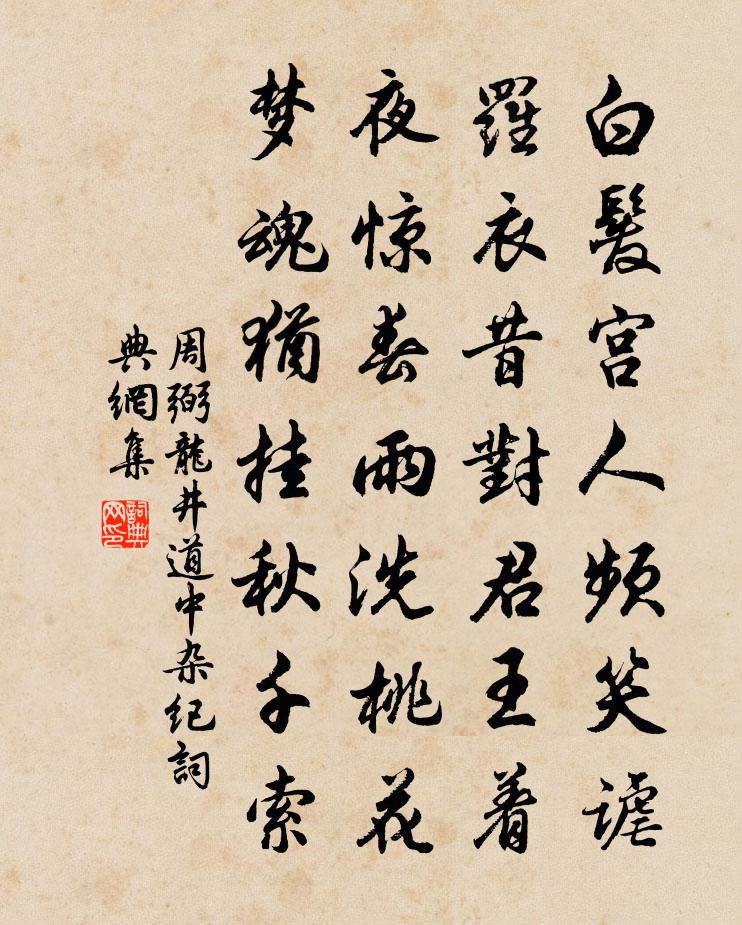 白髮宮人頻笑謔
羅衣昔對君王着
夜惊春雨洗桃花
梦魂猶挂秋千索
周弼龍井道中杂纪詞
典網集
詞典网印